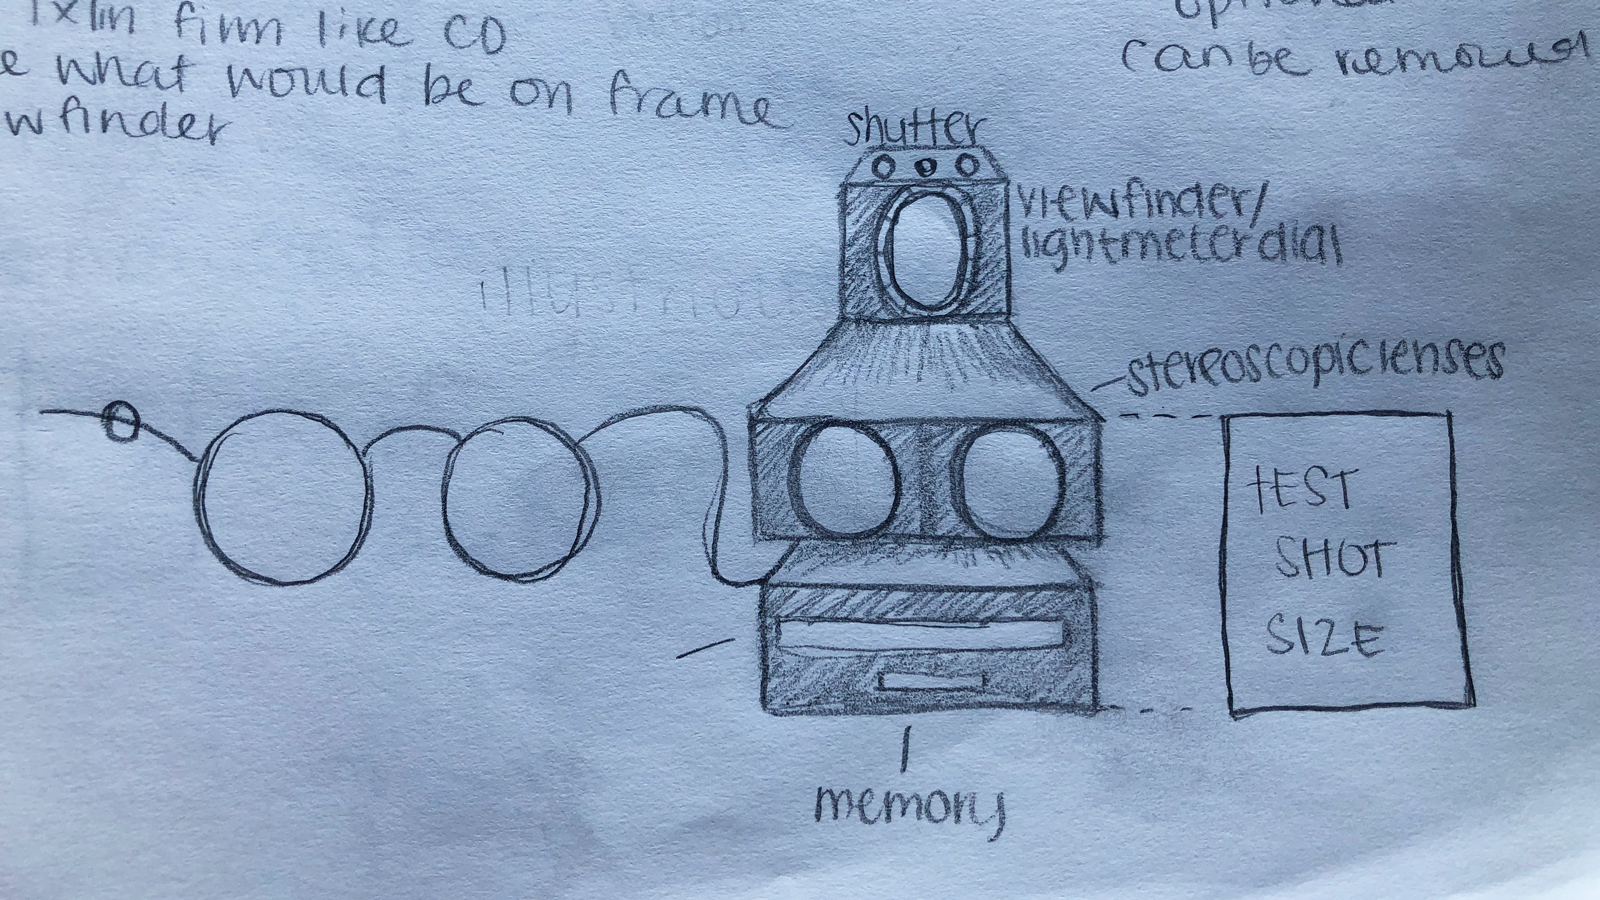 film like CD
what would be on frame
wfinder
can be removed
shutter
viewfinder/
lightmeter dial
stereoscopic lenses
TEST
SHOT
SIZE
memory